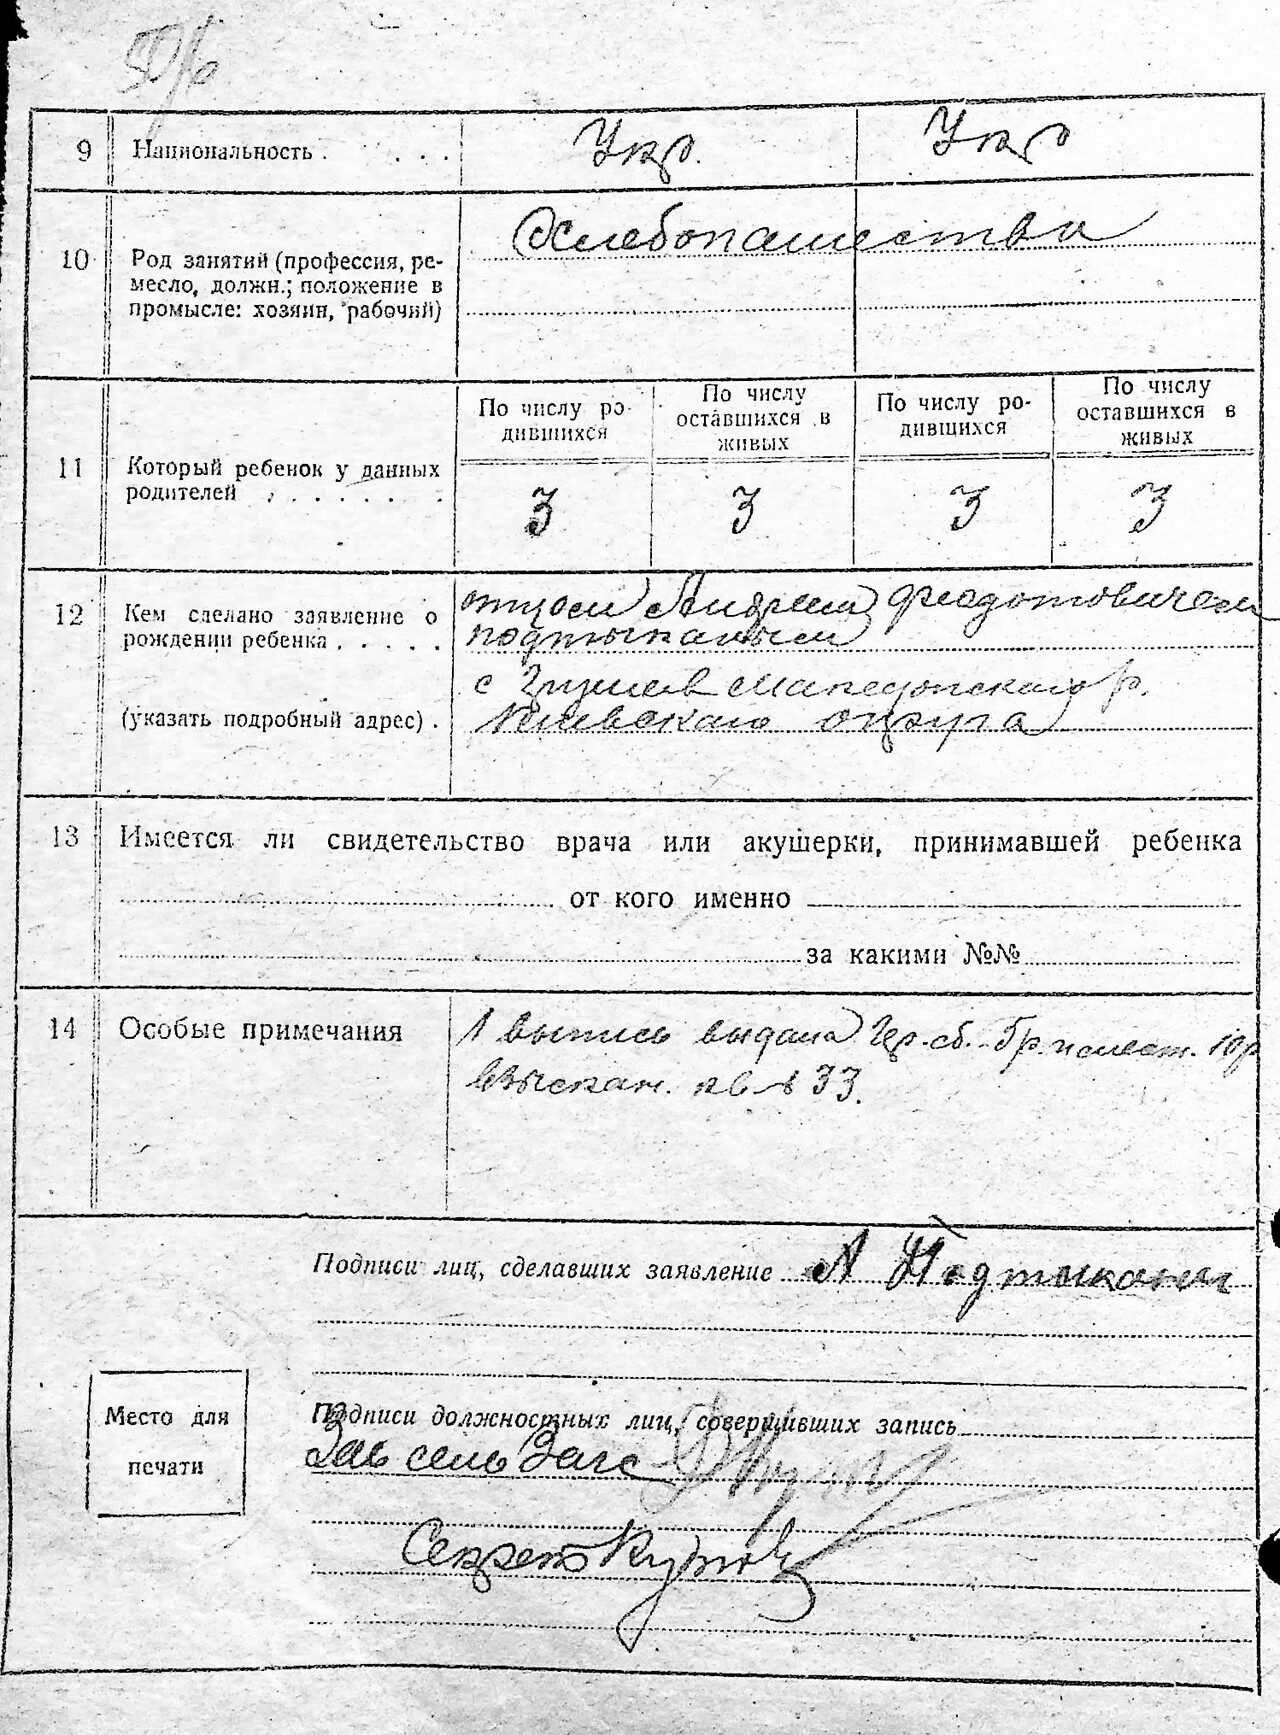 9 Национальность . . . . Укр. Укр
10 Род занятий (профессия, ре-
месло, должн.; положение в
промысле: хозяин, рабочий)
Хлебопашества
11 Который ребенок у данных
родителей . . . . . . .
По числу ро-
дившихся
По числу
оставшихся в
живых
По числу ро-
дившихся
По числу
оставшихся в
живых
3 3 3 3
12 Кем сделано заявление о
рождении ребенка . . . . .
(указать подробный адрес) .
отцом Андреем Феодотовичем
подтыканым
с Македонского р.
Киевского округа
13 Имеется ли свидетельство врача или акушерки, принимавшей ребенка
от кого именно
за какими №№
14 Особые примечания
1 выпись выдана Гер. сб. 10р
взыскан. кв 33.
Подписи лиц, сделавших заявление А Подтыкан
Место для
печати
Подписи должностных лиц, совершивших запись
Зав сель Загс
Секрет